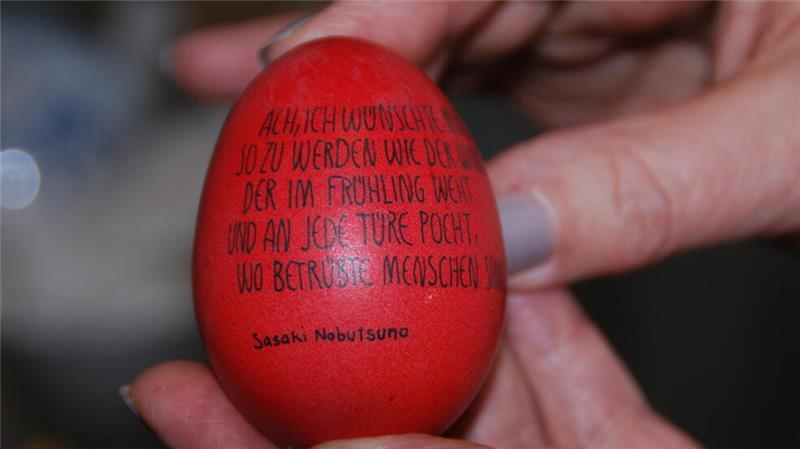 ACH, ICH WÜNSCHTE
SO ZU WERDEN WIE DER
DER IM FRÜHLING WEHT
UND AN JEDE TÜRE POCHT,
WO BETRÜBTE MENSCHEN
Sasaki Nobutsuna